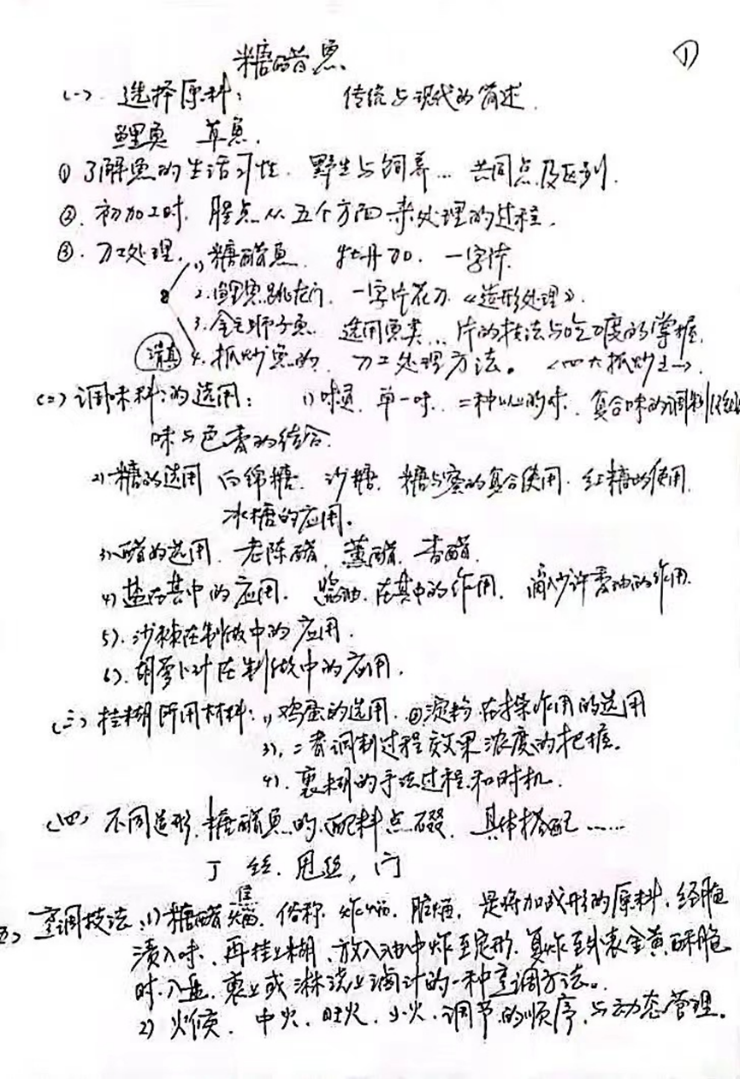 糖醋鱼 ①
(一) 选择原料: 传统与现代的简述.
鲤鱼 草鱼.
① 了解鱼的生活习性. 野生与饲养… 共同点及区别.
②. 初加工时. 腥点从五个方面来处理的过程.
③. 刀工处理. 1) 糖醋鱼. 牡丹刀. 一字片.
2. 鲤鱼跳龙门. 一字片花刀 《造形处理》.
3. 金毛狮子鱼 选用鱼类… 片的技法与吃刀度的掌握.
清真 4. 抓炒鱼的. 刀工处理方法。 <四大抓炒之一>
(二) 调味料:的选用: 1) 味道. 单一味. 二种以上的味. 复合味的调制
味与色香的结合.
2) 糖的选用 白绵糖. 沙糖. 糖与蜜的复合使用. 红糖的使用.
冰糖的应用。
3) 醋的选用. 老陈醋. 熏醋. 香醋.
4) 盐在其中的应用. 酱油. 在其中的作用. 滴入少许香油的作用.
5). 沙棘在制做中的应用.
6). 胡萝卜汁在制做中的应用.
(三) 挂糊所用材料: 1) 鸡蛋的选用. ②淀粉在操作用的选用
3). 二者调制过程效果浓度的把握。
4). 裹糊的手法过程和时机.
(四) 不同造形. 糖醋鱼的配料点缀. 具体搭配……
丁 丝. 甩丝,
五) 烹调技法: 1) 糖醋熘. 俗称. 炸熘. 脆熘. 是将加工成形的原料. 经腌
渍入味. 再挂上糊. 放入油中炸至定形. 复炸至外表金黄酥脆
时. 入盘. 裹上或淋浇上滷汁的一种烹调方法。
2) 火候. 中火. 旺火. 小火. 调节的顺序. 与动态管理。